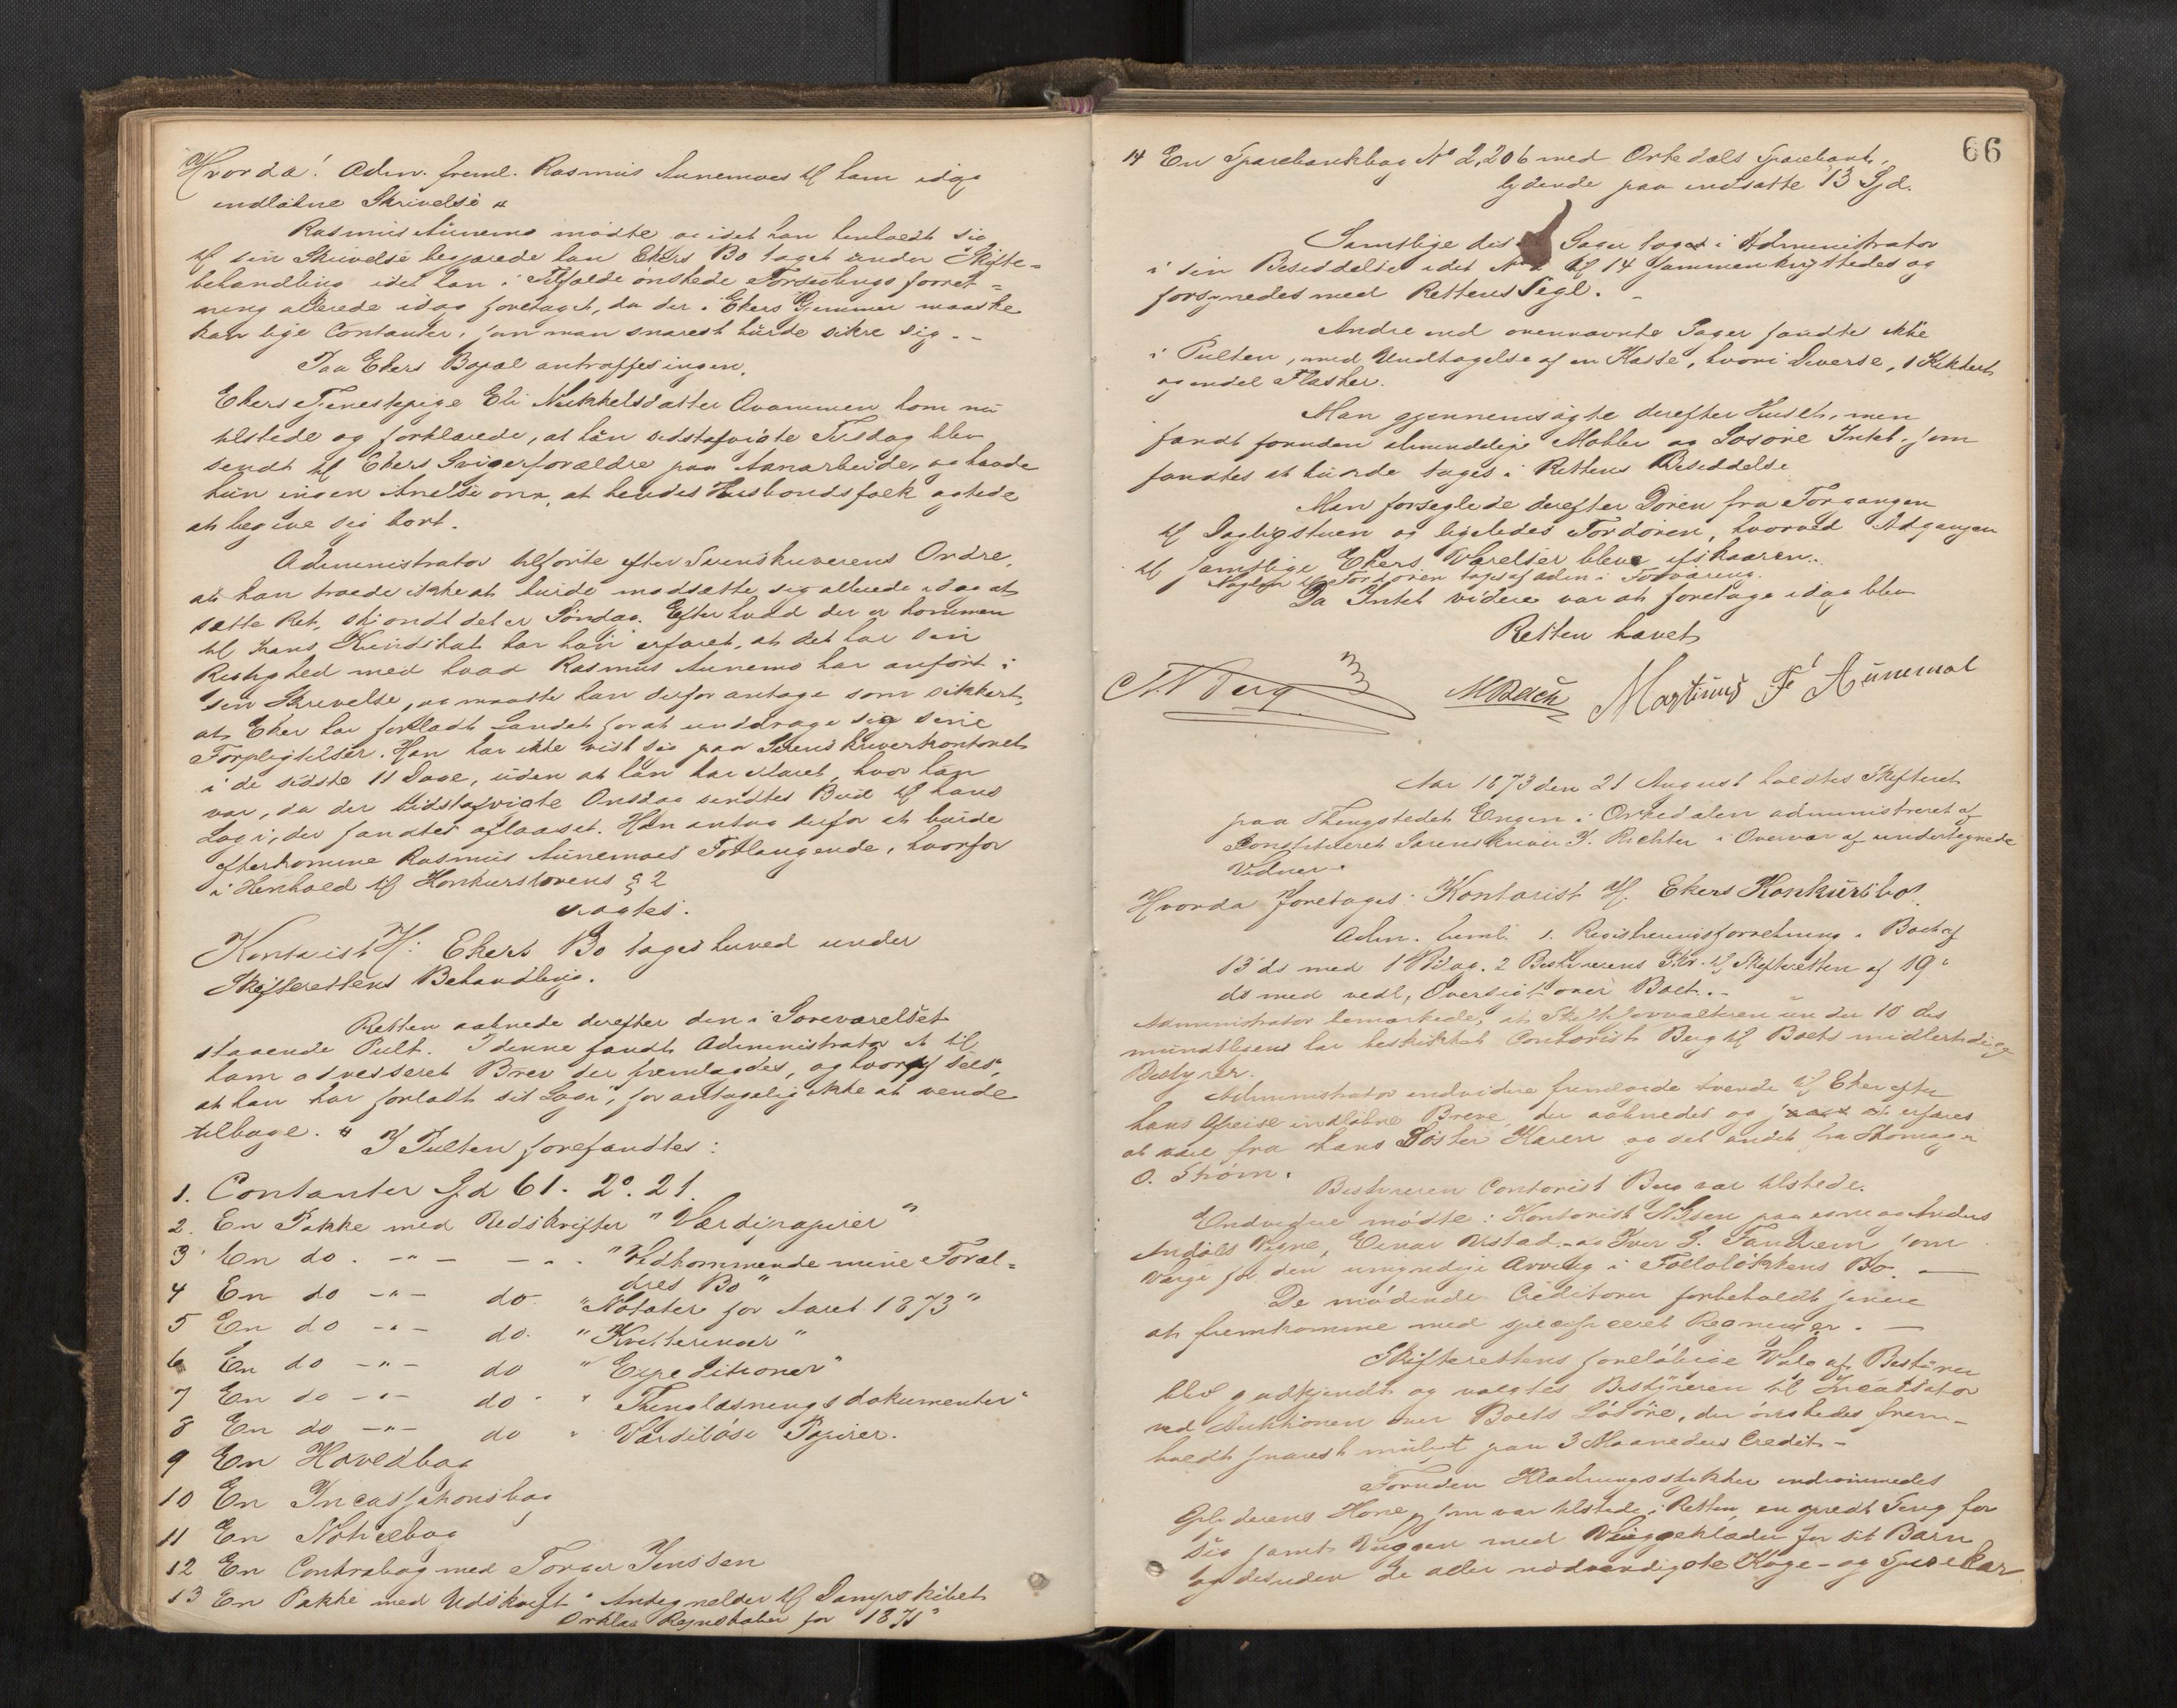 Hvorda! Adm. freml. Rasmus Aunemoes til ham idag
indløbne Skrivelse
Rasmus Aunemo mødte og idet han henholdt sig
til sin Skrivelse begjærede han Ekers Bo taget under Skifte-
behandling idet han i Tilfælde ønskede Forseglings forret-
ning allerede idag foretaget, da der i Ekers Gjemmer maaske
kan ligge Contanter, som man snarest burde sikre sig. -
Paa Ekers Bopæl antraffes ingen.
Ekers Tjenestepige Eli Mikkelsdatter kom nu
tilstede og forklarede, at hun sidstafvigte Tirsdag blev
sendt til Ekers Svigerforældre paa Aanarbeide, og havde
hun ingen Anelse om, at hendes Husbondsfolk agtede
at begive sig bort.
Administrator tilførte efter Sorenskriverens Ordre,
at han troede ikke at burde modsætte sig allerede idag at
sætte Ret, skjøndt det er Søndag. Efter hvad der er kommen
til hans Kundskab har han erfaret, at det har sin
Rigtighed med hvad Rasmus Aunemo har anført i
sin Skrivelse, og maatte han derfor antage som sikkert,
at Eker har forladt Landet for at unddrage sig sine
Forpligtelser. Han har ikke vist sig paa Sorenskriverkontoret
i de sidste 11 Dage, uden at han har klaret, hvor han
var, da der sidstafvigte Onsdag sendtes Bud til hans
Logi, der fandtes aflaaset. Han antog derfor at burde
efterkomme Rasmus Aunemoes Forlangende, hvorfor
i Henhold til Konkurslovens § 2
vragtes:
Kontorist H: Ekers Bo tages herved under
Skifterettens Behandling.
Retten aabnede derefter den i Soveværelset
staaende Pult. I denne fandt Administrator et til
ham adresseret Brev der fremlagdes, og hvoraf sees,
at han har forladt sit Logi, for antagelig ikke at vende
tilbage. " I Pulten forefandtes:
1. Contanter Spd 61. 2. 21.
2. En Pakke med Udskrifter "Værdipapirer"
3 En do. -"- - " - "Vedkommende mine Foræl-
dres Bo"
4 En do -"- do. "Notater for Aaret 1873"
5 En do -"- do. "Kvitteringer"
6 En do -"- do "Expeditioner"
7 En do -"- do " "Thinglæsningsdokumenter"
8 En do -"- do " Værdiløse Papirer.
9 En Hovedbog
10 En Incassationsbog
11 En Noticebog
12 En Contrabog med Torger Jenssen
13 En Pakke med Udskrift "Antegnelder til Dampskibet
Orklas Regnskaber for 1871"
66
14 En Sparebankbog No 2,206 med Orkedals Sparebank,
lydende paa indsatte 13 Spd.
Samtlige disse Sager toges i Administrator
i sin Besiddelse idet No til 14 sammenknyttedes og
forsynedes med Rettens Segl. -
Andre end ovennævnte Sager fandtes ikke
i Pulten, med Undtagelse af en Kasse, hvori Diverse, 1 Kikkert
og endel Flasker.
Man gjennemsøgte derefter Huset, men
fandt foruden almindelige Møbler og Løsøre Intet, som
fandtes at burde tages i Rettens Besiddelse
Man forseglede derefter Døren fra Forgangen
til Dagligstuen og ligeledes Fordøren, hvorved Adgangen
til samtlige Ekers Værelser bleve afskaaren.
Nøglen til Fordøren toges af Adm. i Forvaring.
Da Intet videre var at foretage idag blev
Retten hævet
Berg Martinus Aunemo
Aar 1873 den 21 August holdtes Skifteret
paa Thingstedet Engen i Orkedalen administreret af
Constitueret Sorenskriver J. Richter i Overvær af undertegnede
Vidner.
Hvorda foretages: Kontorist H. Ekers Konkursbo.
Adm. freml. 1. Registreringsforretning i Boet af
13 ds med 1 Bilag. 2 Bestyrerens Skr. til Skifteretten af 19
ds med vedl. Oversigt over Boet. -
Administrator bemærkede, at Skifteforvalteren under 10 ds
mundtligen har beskikket Contorist Berg til Boets midlertidige
Bestyrer.
Administrator endvidere fremlagde tvende til Eker efter
hans Afreise indløbne Breve, der aabnedes og erfares
at være fra hans Søster Karen og det andet fra Skomager
O. Strøm.
Bestyreren Contorist Berg var tilstede.
Endvidere mødte: Kontorist paa egne og Anders
Vegne, Einar Ustad og Iver J. som
Værge for den umyndige Arving i Bo. -
De mødende Creditorer forbeholdt senere
at fremkomme med specificeret Regninger. -
Skifterettens foreløbige Valg af Bestyrer
blev godkjendt og valgtes Bestyreren til Incassator
ved Auktionen over Boets Løsøre, der ønskedes frem-
holdt snarest muligt paa 3 Maaneders Credit -
Foruden Klædningsstykker indrømmedes
Opbyderens Kone, som var tilstede i Retten, en opredt Seng for
sig samt Vuggen med Vuggeklæder for sit Barn
og desuden de aller nødvendigste Koge- og Spisekar